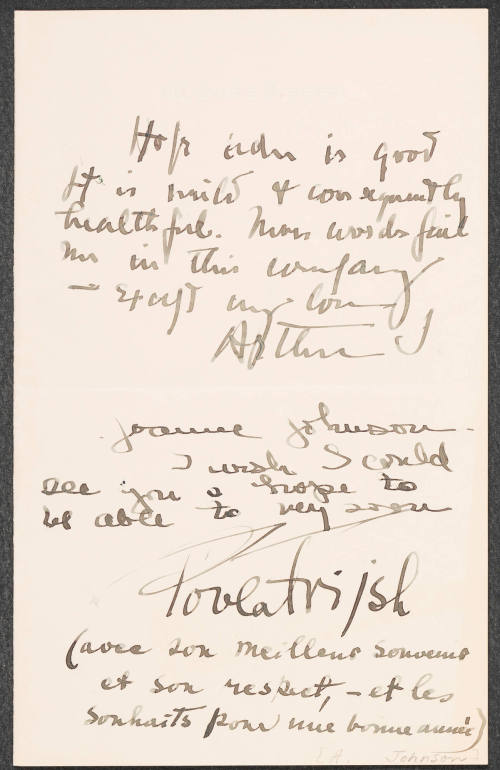 Hope cider is good
It is mild & consequently
healthful. Mere words fail
me in this company
— Except my love
Arthur J
Joanne Johnson -
I wish I could
see you & hope to
be able to very soon
Povla Frijsh
(avec son meilleur souvenir
et son respect, - et les
souhaits pour une bonne année)
[A. Johnson]